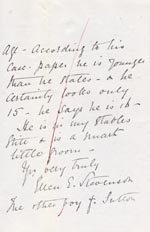 Age - According to his
Case-paper he is younger
than he states - & he
certainly looks only
15 - he says he is 18 -
He is in my stables
still & is a smart
little groom -
Yrs very truly
Ellen E. Stevenson
The other boy J. Sutton